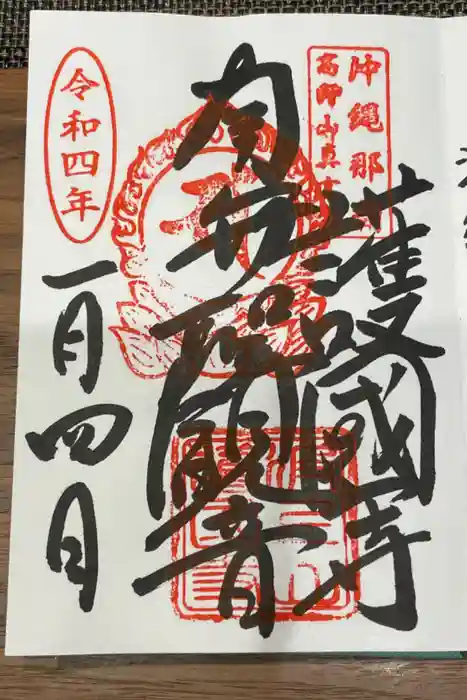 沖縄那
高野山真
護國寺
聖観音
令和四年
一月四日